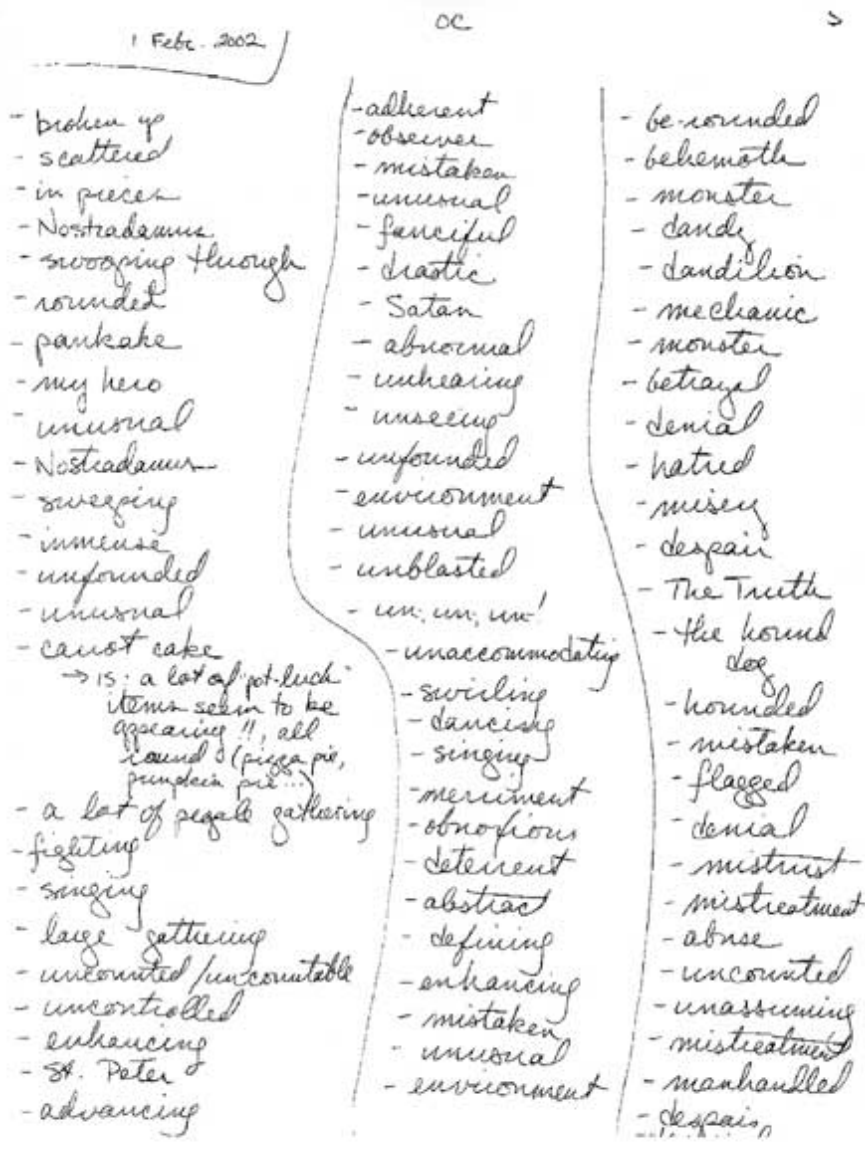 1 Febr. 2002
OC
5
- broken up
- scattered
- in pieces
- Nostradamus
- swooping through
- rounded
- pankake
- my hero
- unusual
- Nostradamus
- sweeping
- immense
- unfounded
- unusual
- carrot cake
→ is: a lot of "pot-luck"
items seem to be
appearing!!, all
round (pizza pie,
pumpkin pie...)
- a lot of people gathering
- fighting
- singing
- large gathering
- uncounted/uncountable
- uncontrolled
- enhancing
- St. Peter
- advancing
- adherent
- observer
- mistaken
- unusual
- fanciful
- drastic
- Satan
- abnormal
- unhearing
- unseeing
- unfounded
- environment
- unusual
- unblasted
- un, un, un!
- unaccommodating
- swirling
- dancing
- singing
- merriment
- obnoxious
- deterrent
- abstract
- defining
- enhancing
- mistaken
- unusual
- environment
- be-rounded
- behemoth
- monster
- dandy
- dandilion
- mechanic
- monster
- betrayal
- denial
- hatred
- misery
- despair
- The Truth
- the hound
dog
- hounded
- mistaken
- flagged
- denial
- mistrust
- mistreatment
- abuse
- uncounted
- unassuming
- mistreatment
- manhandled
- despair